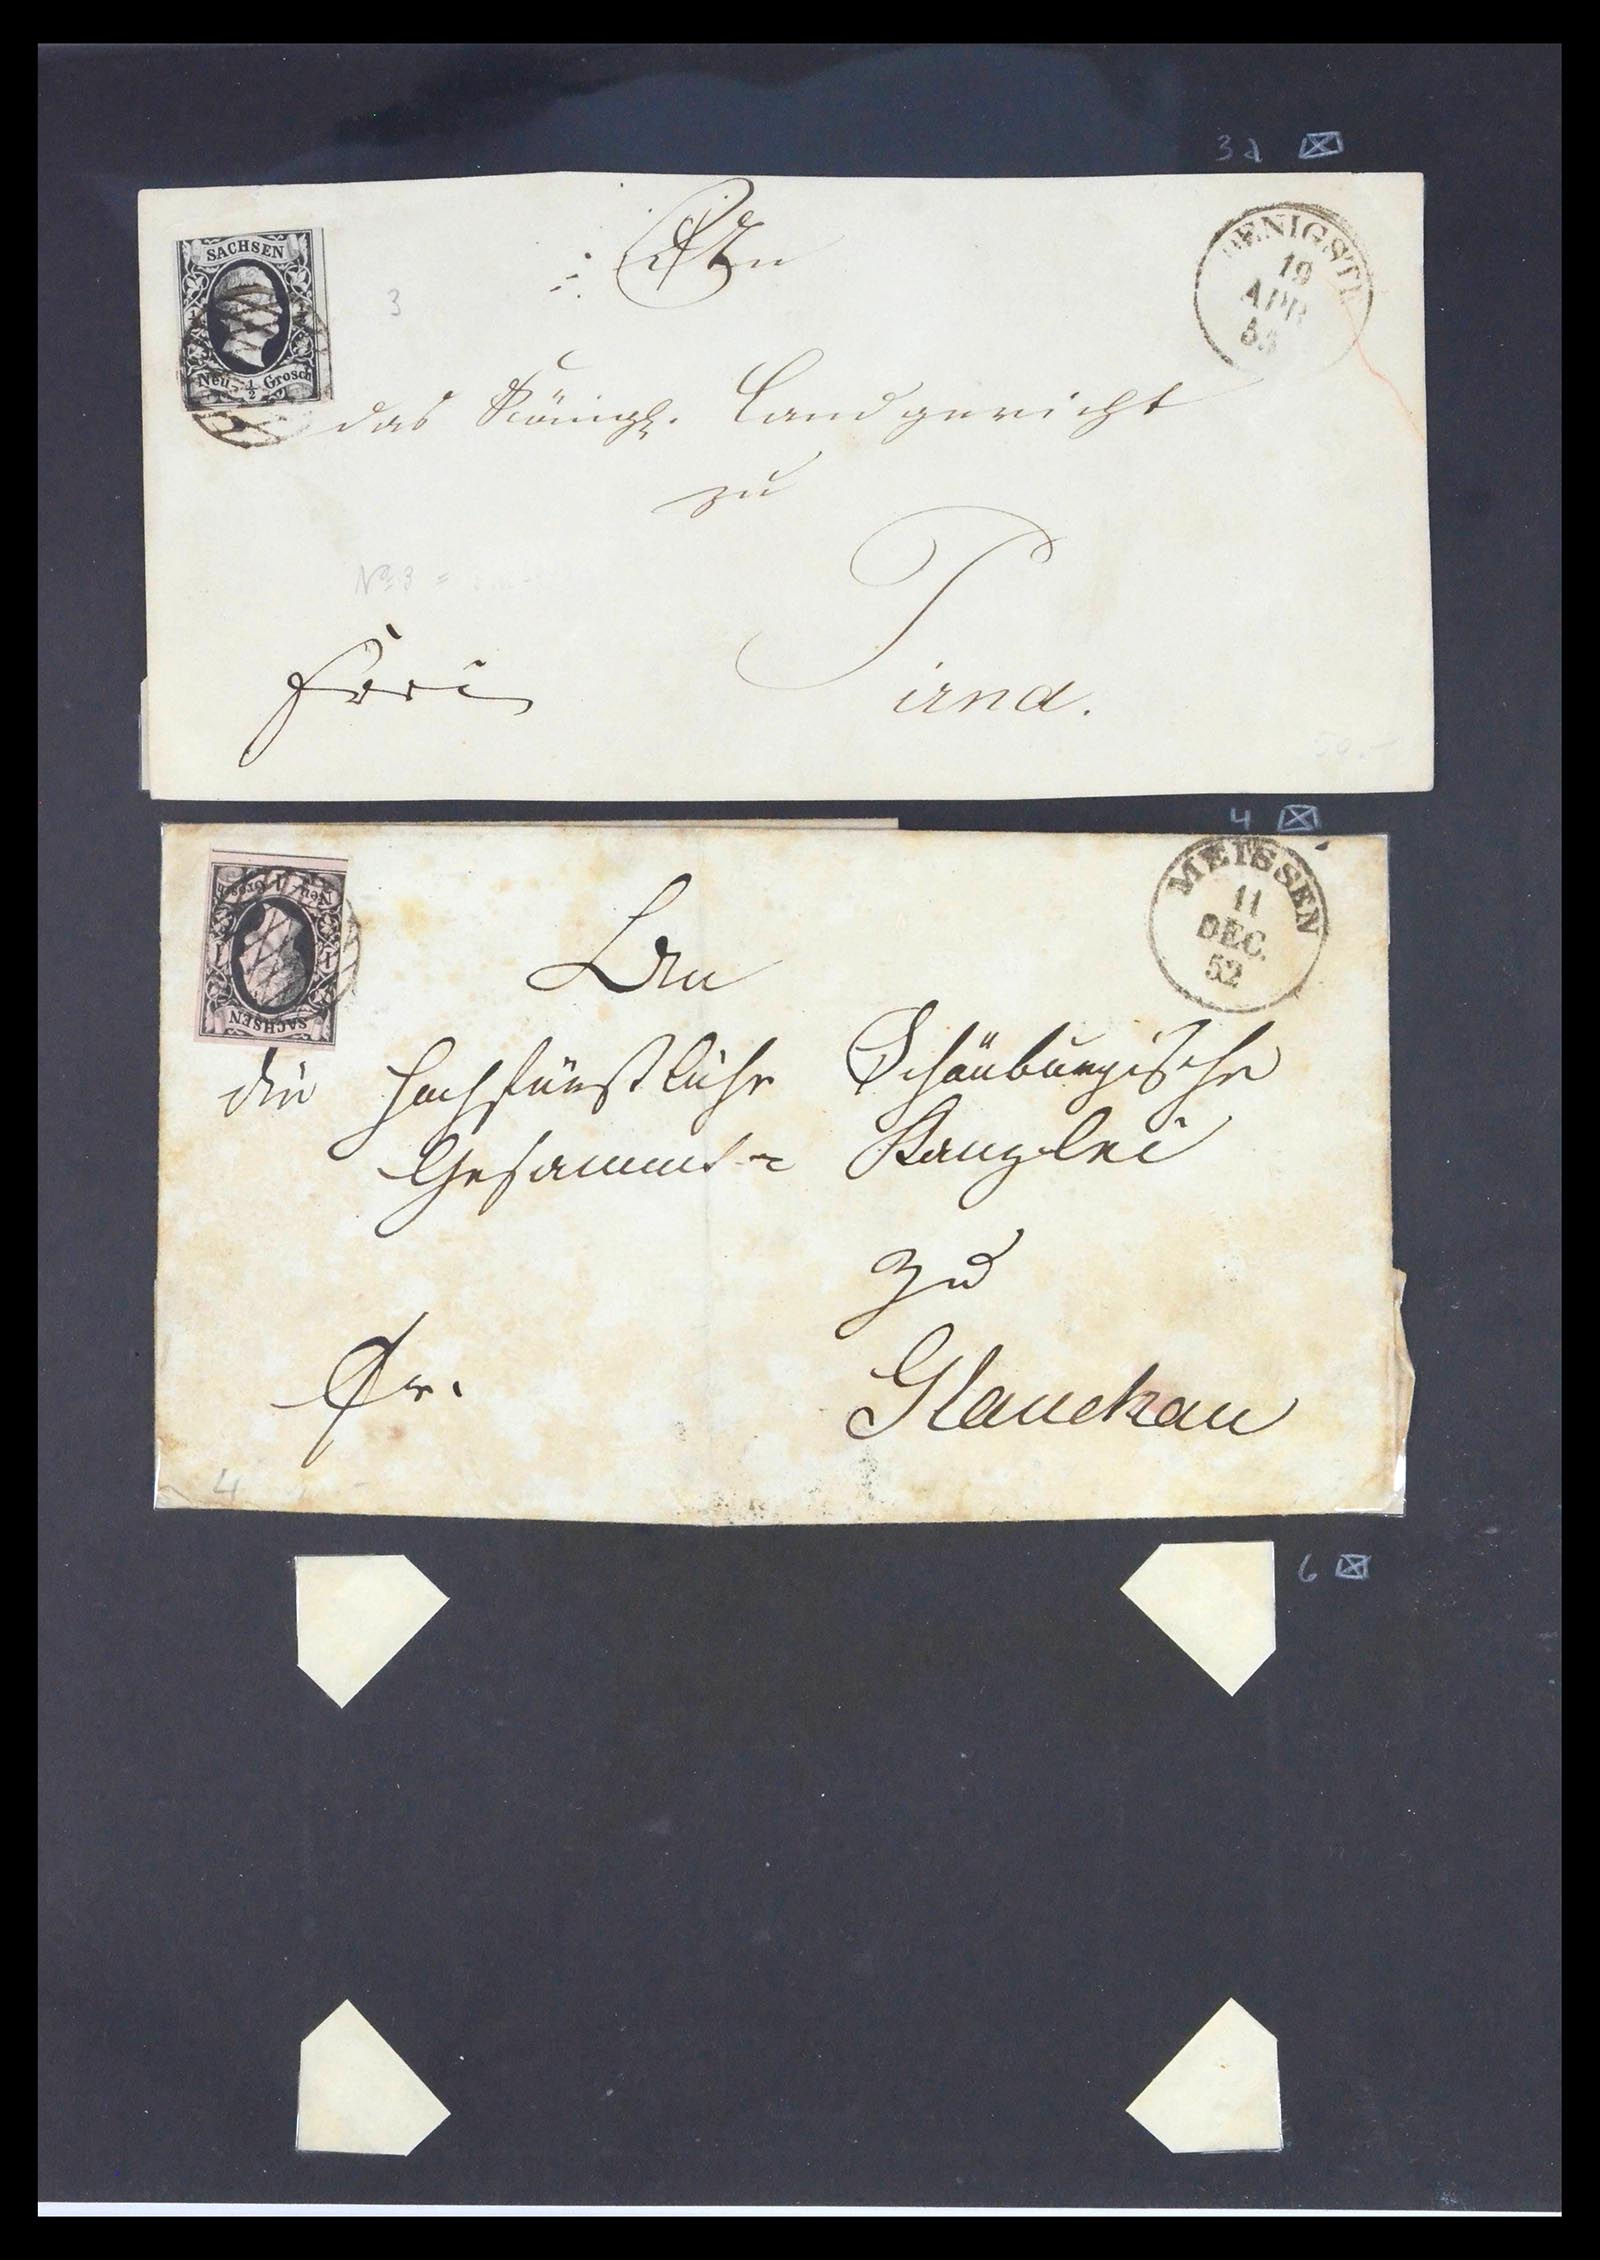 3a
SACHSEN
Neu- ½ Grosch
3
An
das Königl. Landgericht
zu
Pirna.
Frei
No 3 =
50.-
19
APR
53
4
MEISSEN
11
DEC.
52
SACHSEN
Neu 1 Grosch
1 1
An
die Hochfürstliche Schönburgische
Gesammt- Kanzlei
zu
Glauchau
Fr.
4
6